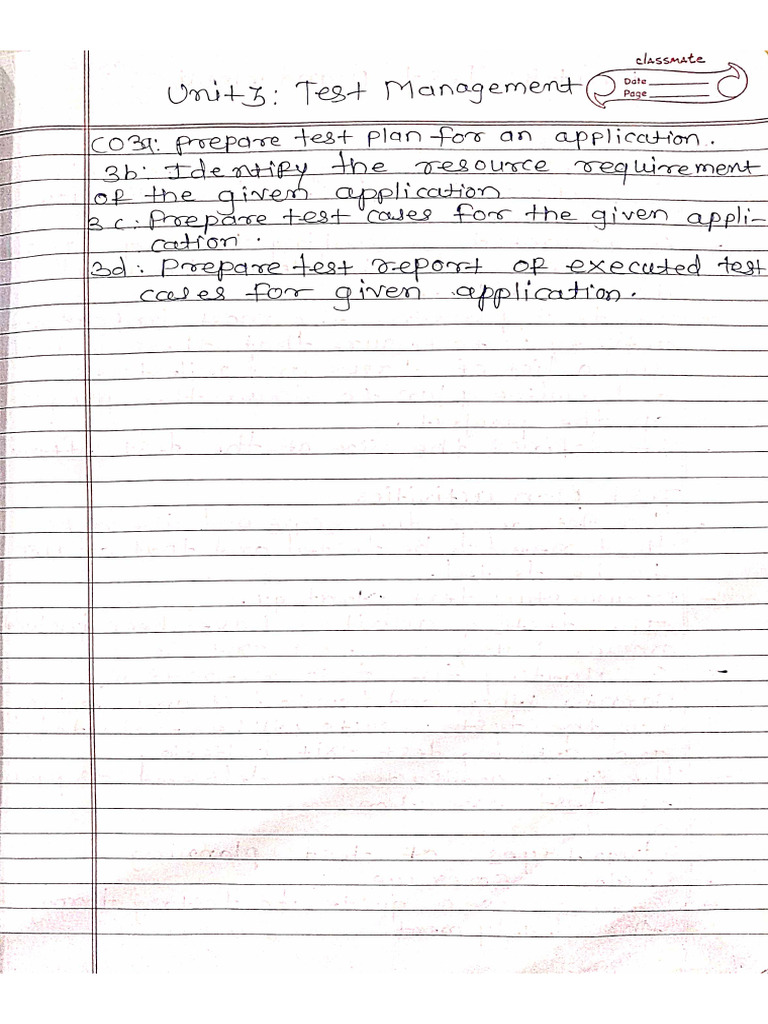 classmate
Date
Page
Unit 3: Test Management
CO3a: Prepare test plan for an application.
3b: Identify the resource requirement
of the given application
3c: Prepare test cases for the given appli-
cation.
3d: Prepare test report of executed test
cases for given application.